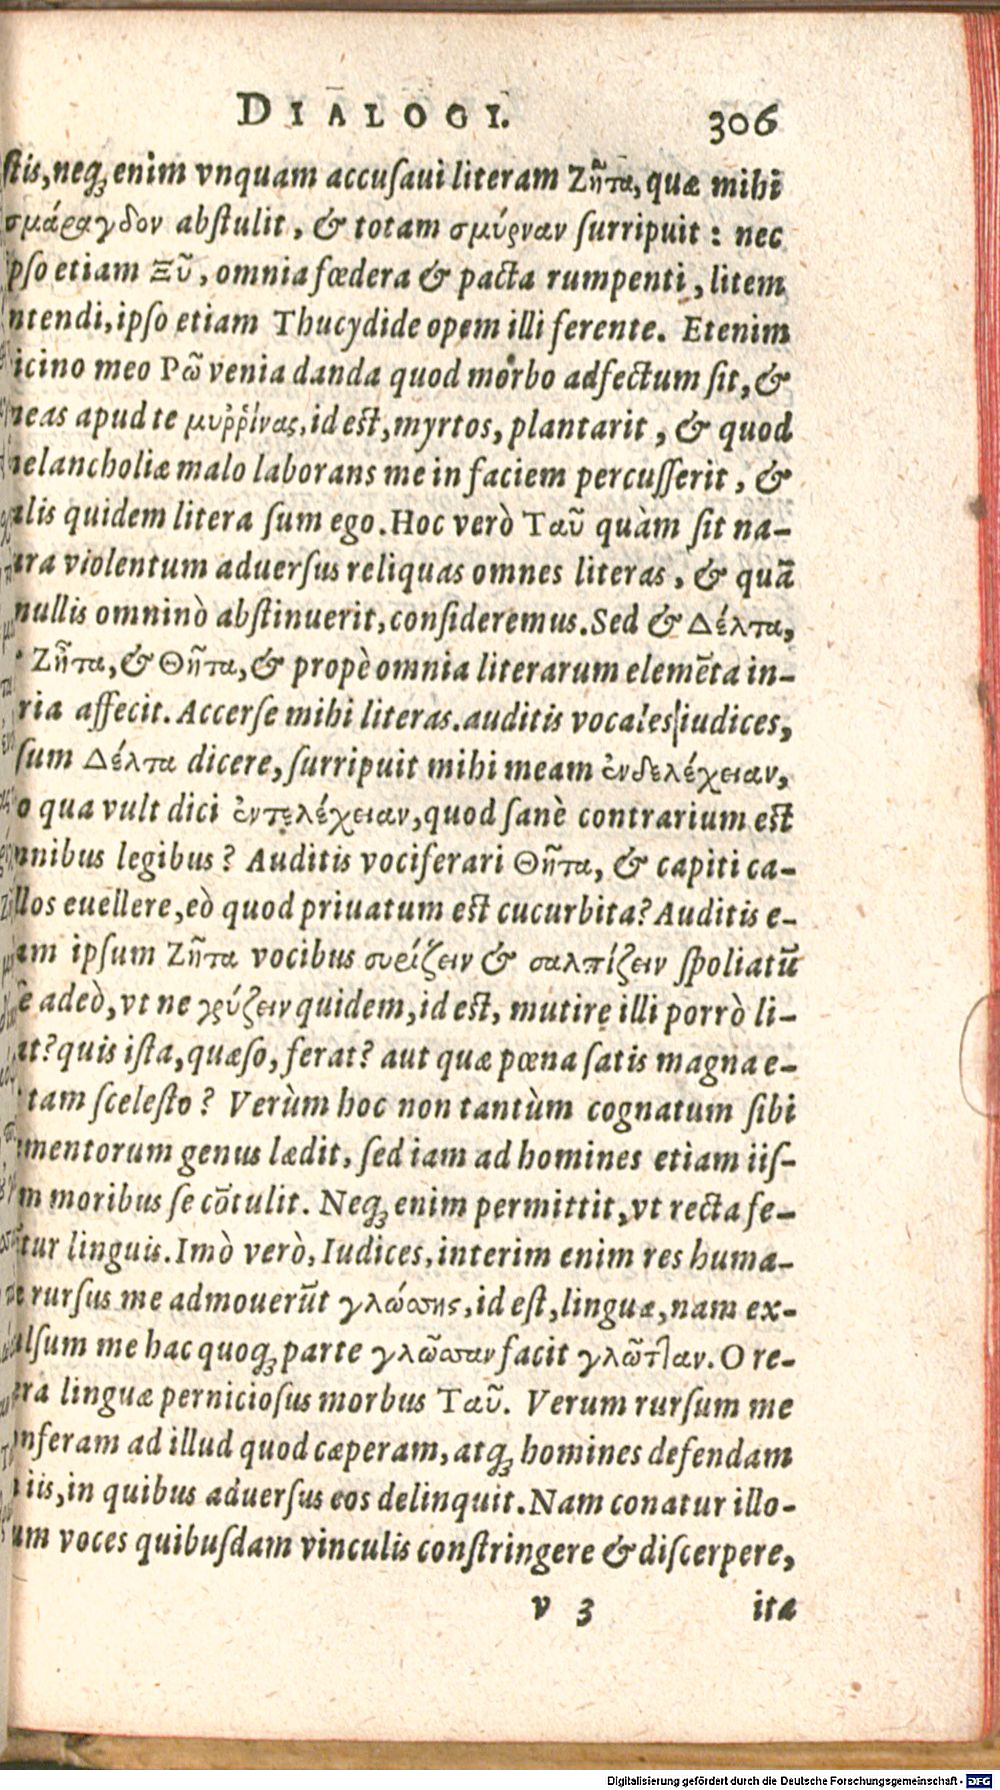 DIALOGI. 306
ſtis, neq; enim vnquam accuſaui literam Ζῆτα, quæ mihi
σμάραγδον abſtulit, & totam σμύρναν ſurripuit: nec
pſo etiam Ξῦ, omnia fœdera & pacta rumpenti, litem
ntendi, ipſo etiam Thucydide opem illi ferente. Etenim
icino meo Ρῶ venia danda quod morbo adfectum ſit, &
neas apud te μυῤῥίνας, id eſt, myrtos, plantarit, & quod
melancholiæ malo laborans me in faciem percuſſerit, &
alis quidem litera ſum ego. Hoc verò Ταῦ quàm ſit na-
ura violentum aduerſus reliquas omnes literas, & quā
nullis omninò abſtinuerit, conſideremus. Sed & Δέλτα,
Ζῆτα, & Θῆτα, & propè omnia literarum elemēta in-
ria affecit. Accerſe mihi literas. auditis vocales iudices,
ſum Δέλτα dicere, ſurripuit mihi meam ἐνδελέχειαν,
o qua vult dici ἐντελέχειαν, quod ſanè contrarium eſt
mnibus legibus? Auditis vociferari Θῆτα, & capiti ca-
llos euellere, eò quod priuatum eſt cucurbita? Auditis e-
am ipſum Ζῆτα vocibus συρίζειν & σαλπίζειν ſpoliatū
ē adeò, vt ne γρύζειν quidem, id eſt, mutire illi porrò li-
at? quis iſta, quæſo, ferat? aut quæ pœna ſatis magna e-
tam ſceleſto? Verùm hoc non tantùm cognatum ſibi
ementorum genus lædit, ſed iam ad homines etiam iiſ-
m moribus ſe cōtulit. Neq; enim permittit, vt recta fe-
tur linguis. Imò verò, Iudices, interim enim res huma-
e rurſus me admouerūt γλώσσης, id eſt, linguæ, nam ex-
ulſum me hac quoq; parte γλῶσσαν facit γλῶτταν. O re-
era linguæ pernicioſus morbus Ταῦ. Verum rurſum me
onferam ad illud quod cæperam, atq; homines defendam
iis, in quibus aduerſus eos delinquit. Nam conatur illo-
um voces quibuſdam vinculis conſtringere & diſcerpere,
v 3 ita
Digitalisierung gefördert durch die Deutsche Forschungsgemeinschaft - DFG